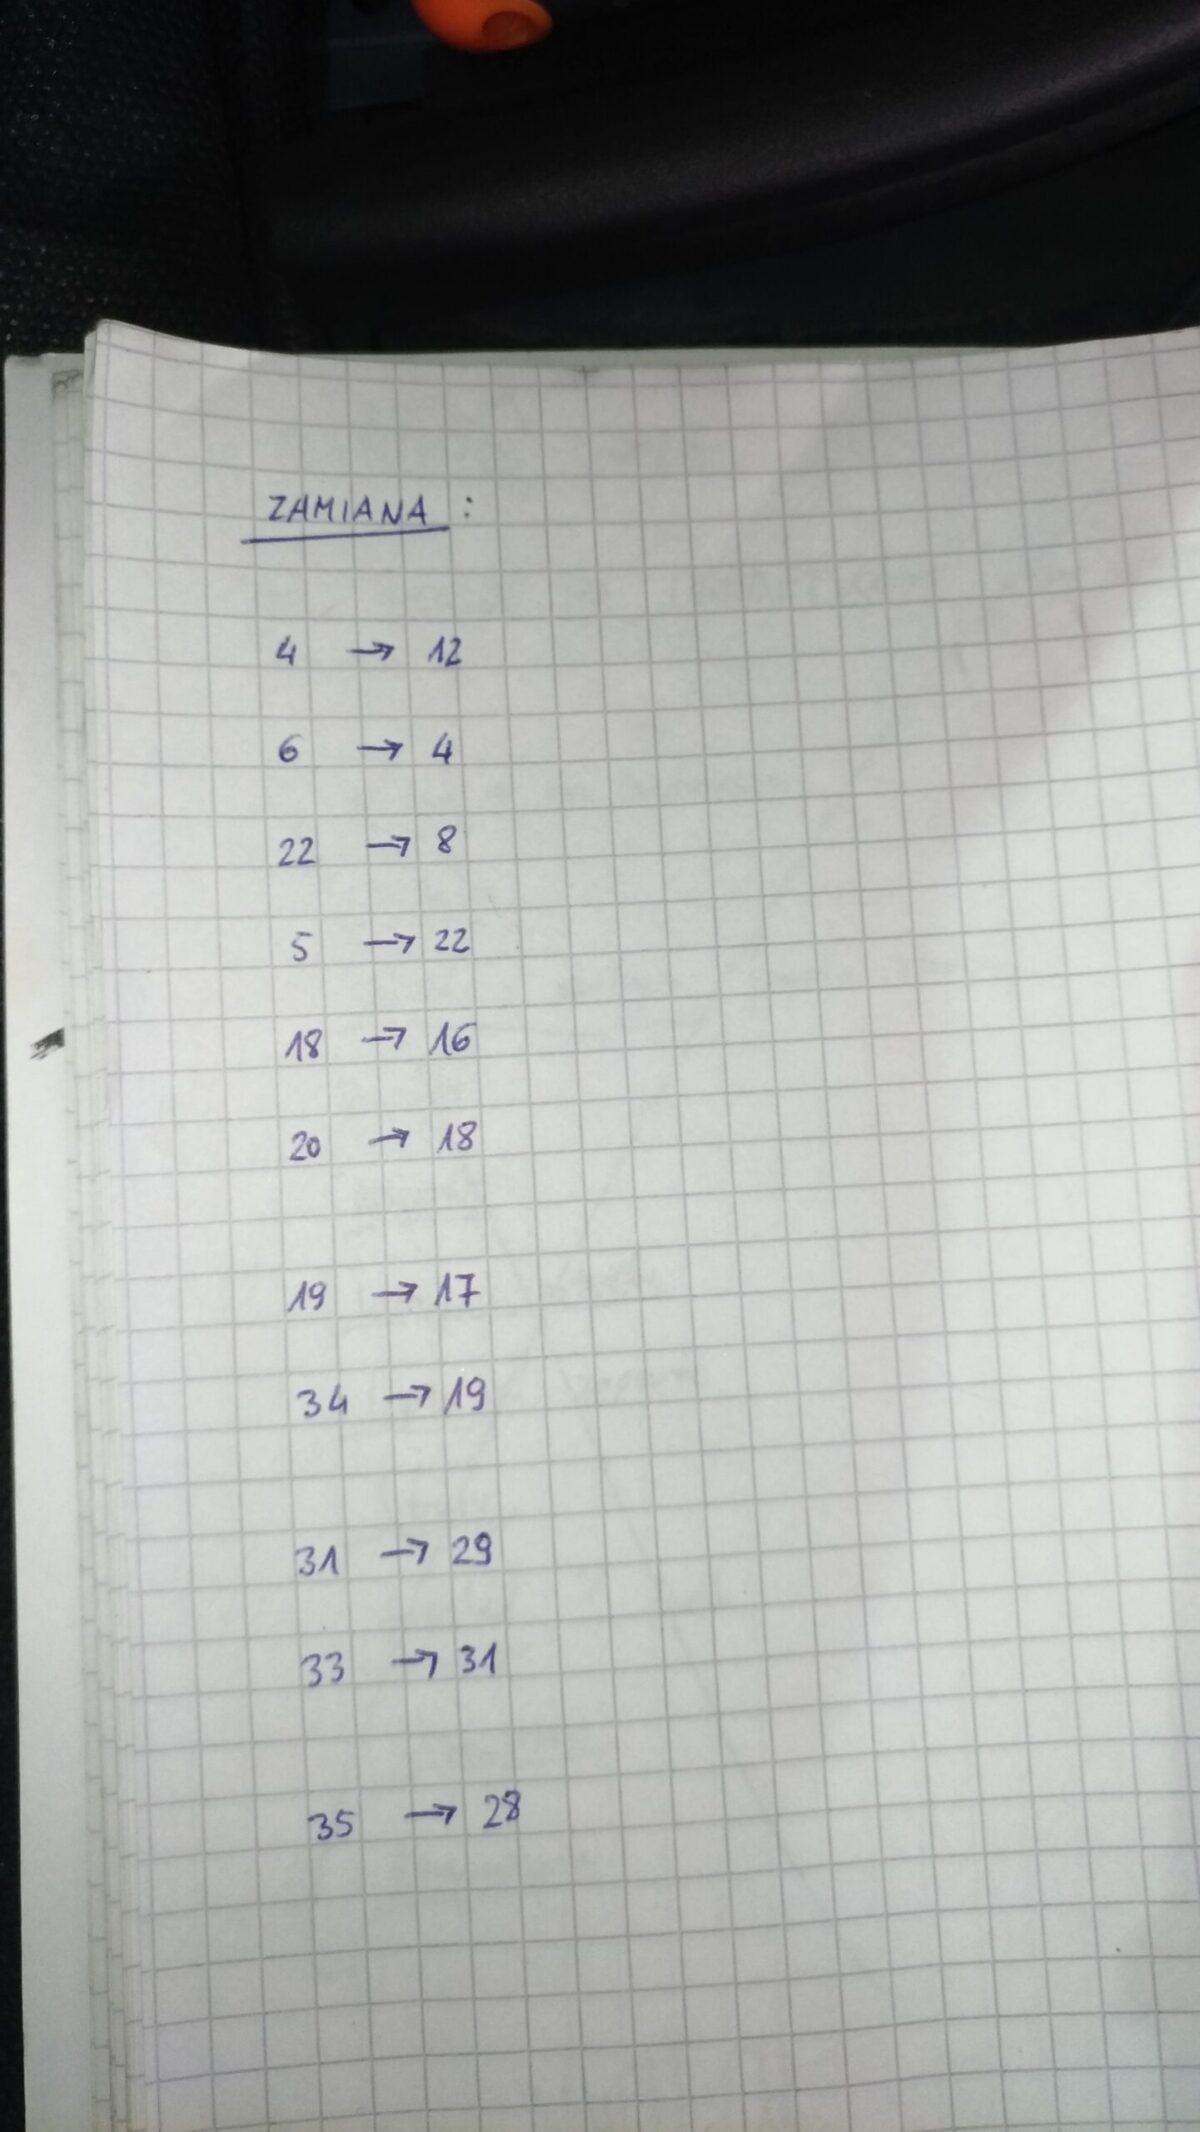 ZAMIANA :
4 → 12
6 → 4
22 → 8
5 → 22
18 → 16
20 → 18
19 → 17
34 → 19
31 → 29
33 → 31
35 → 28